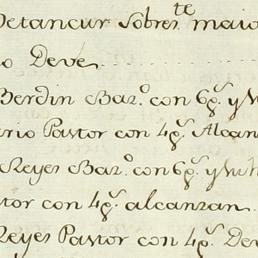 Betancur Sobres.te maio
o Deve
Berdin Baz.o con 6p.s y
ario Pastor con 4p.s Alcan
Reyes Baz.o con 6p.s y
tor con 4p.s alcanzan
Reyes Pastor con 4p.s De